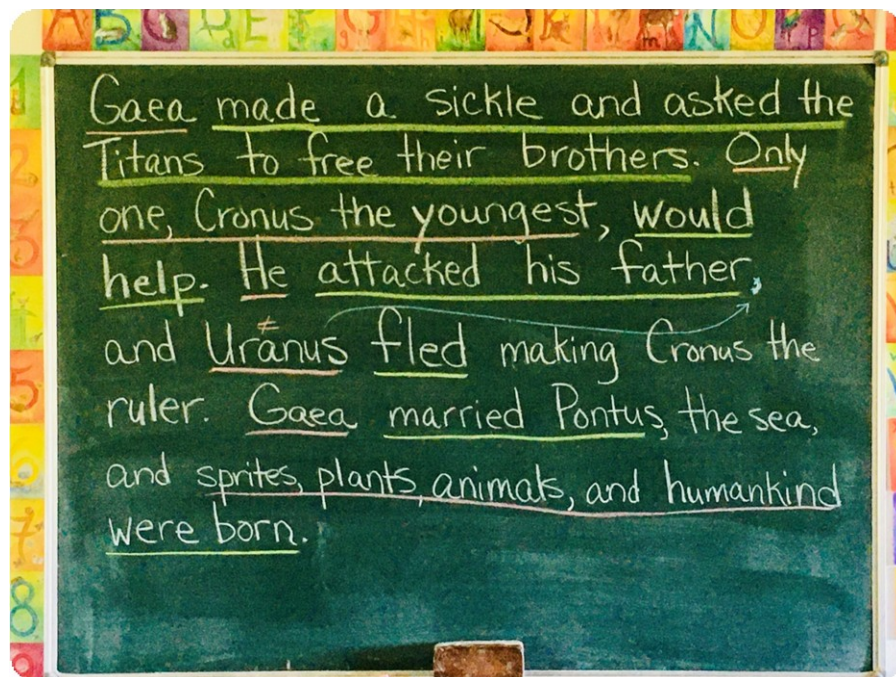 Gaea made a sickle and asked the
Titans to free their brothers. Only
one, Cronus the youngest, would
help. He attacked his father,
and Uranus fled making Cronus the
ruler. Gaea married Pontus, the sea,
and sprites, plants, animals, and humankind
were born.